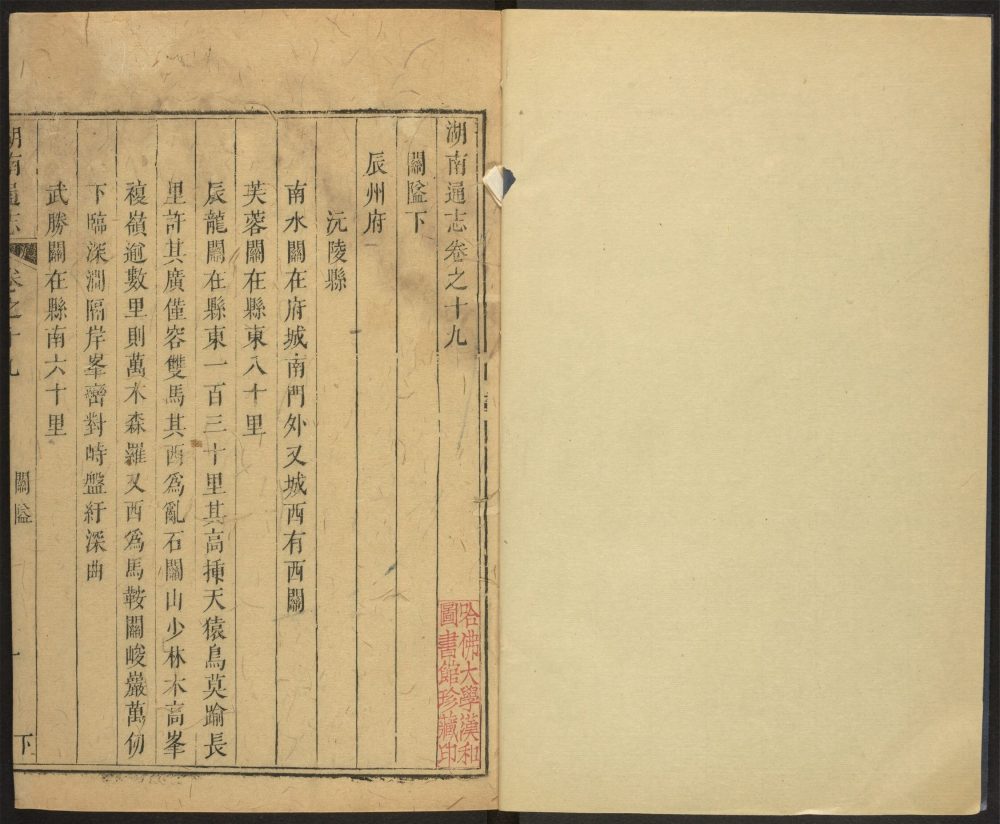 湖南通志卷之十九
關隘下
辰州府
沅陵縣
南水關在府城南門外又城西有西關
芙蓉關在縣東八十里
辰龍關在縣東一百三十里其高揷天猿鳥莫踰長
里許其廣僅容雙馬其西爲亂石關山少林木高峯
複嶺逾數里則萬木森羅又西爲馬鞍關峻巖萬仞
下臨深澗隔岸峯巒對峙盤紆深曲
武勝關在縣南六十里
湖南通志 卷之十九 關隘 一 下
哈佛大學漢和
圖書館珍藏印